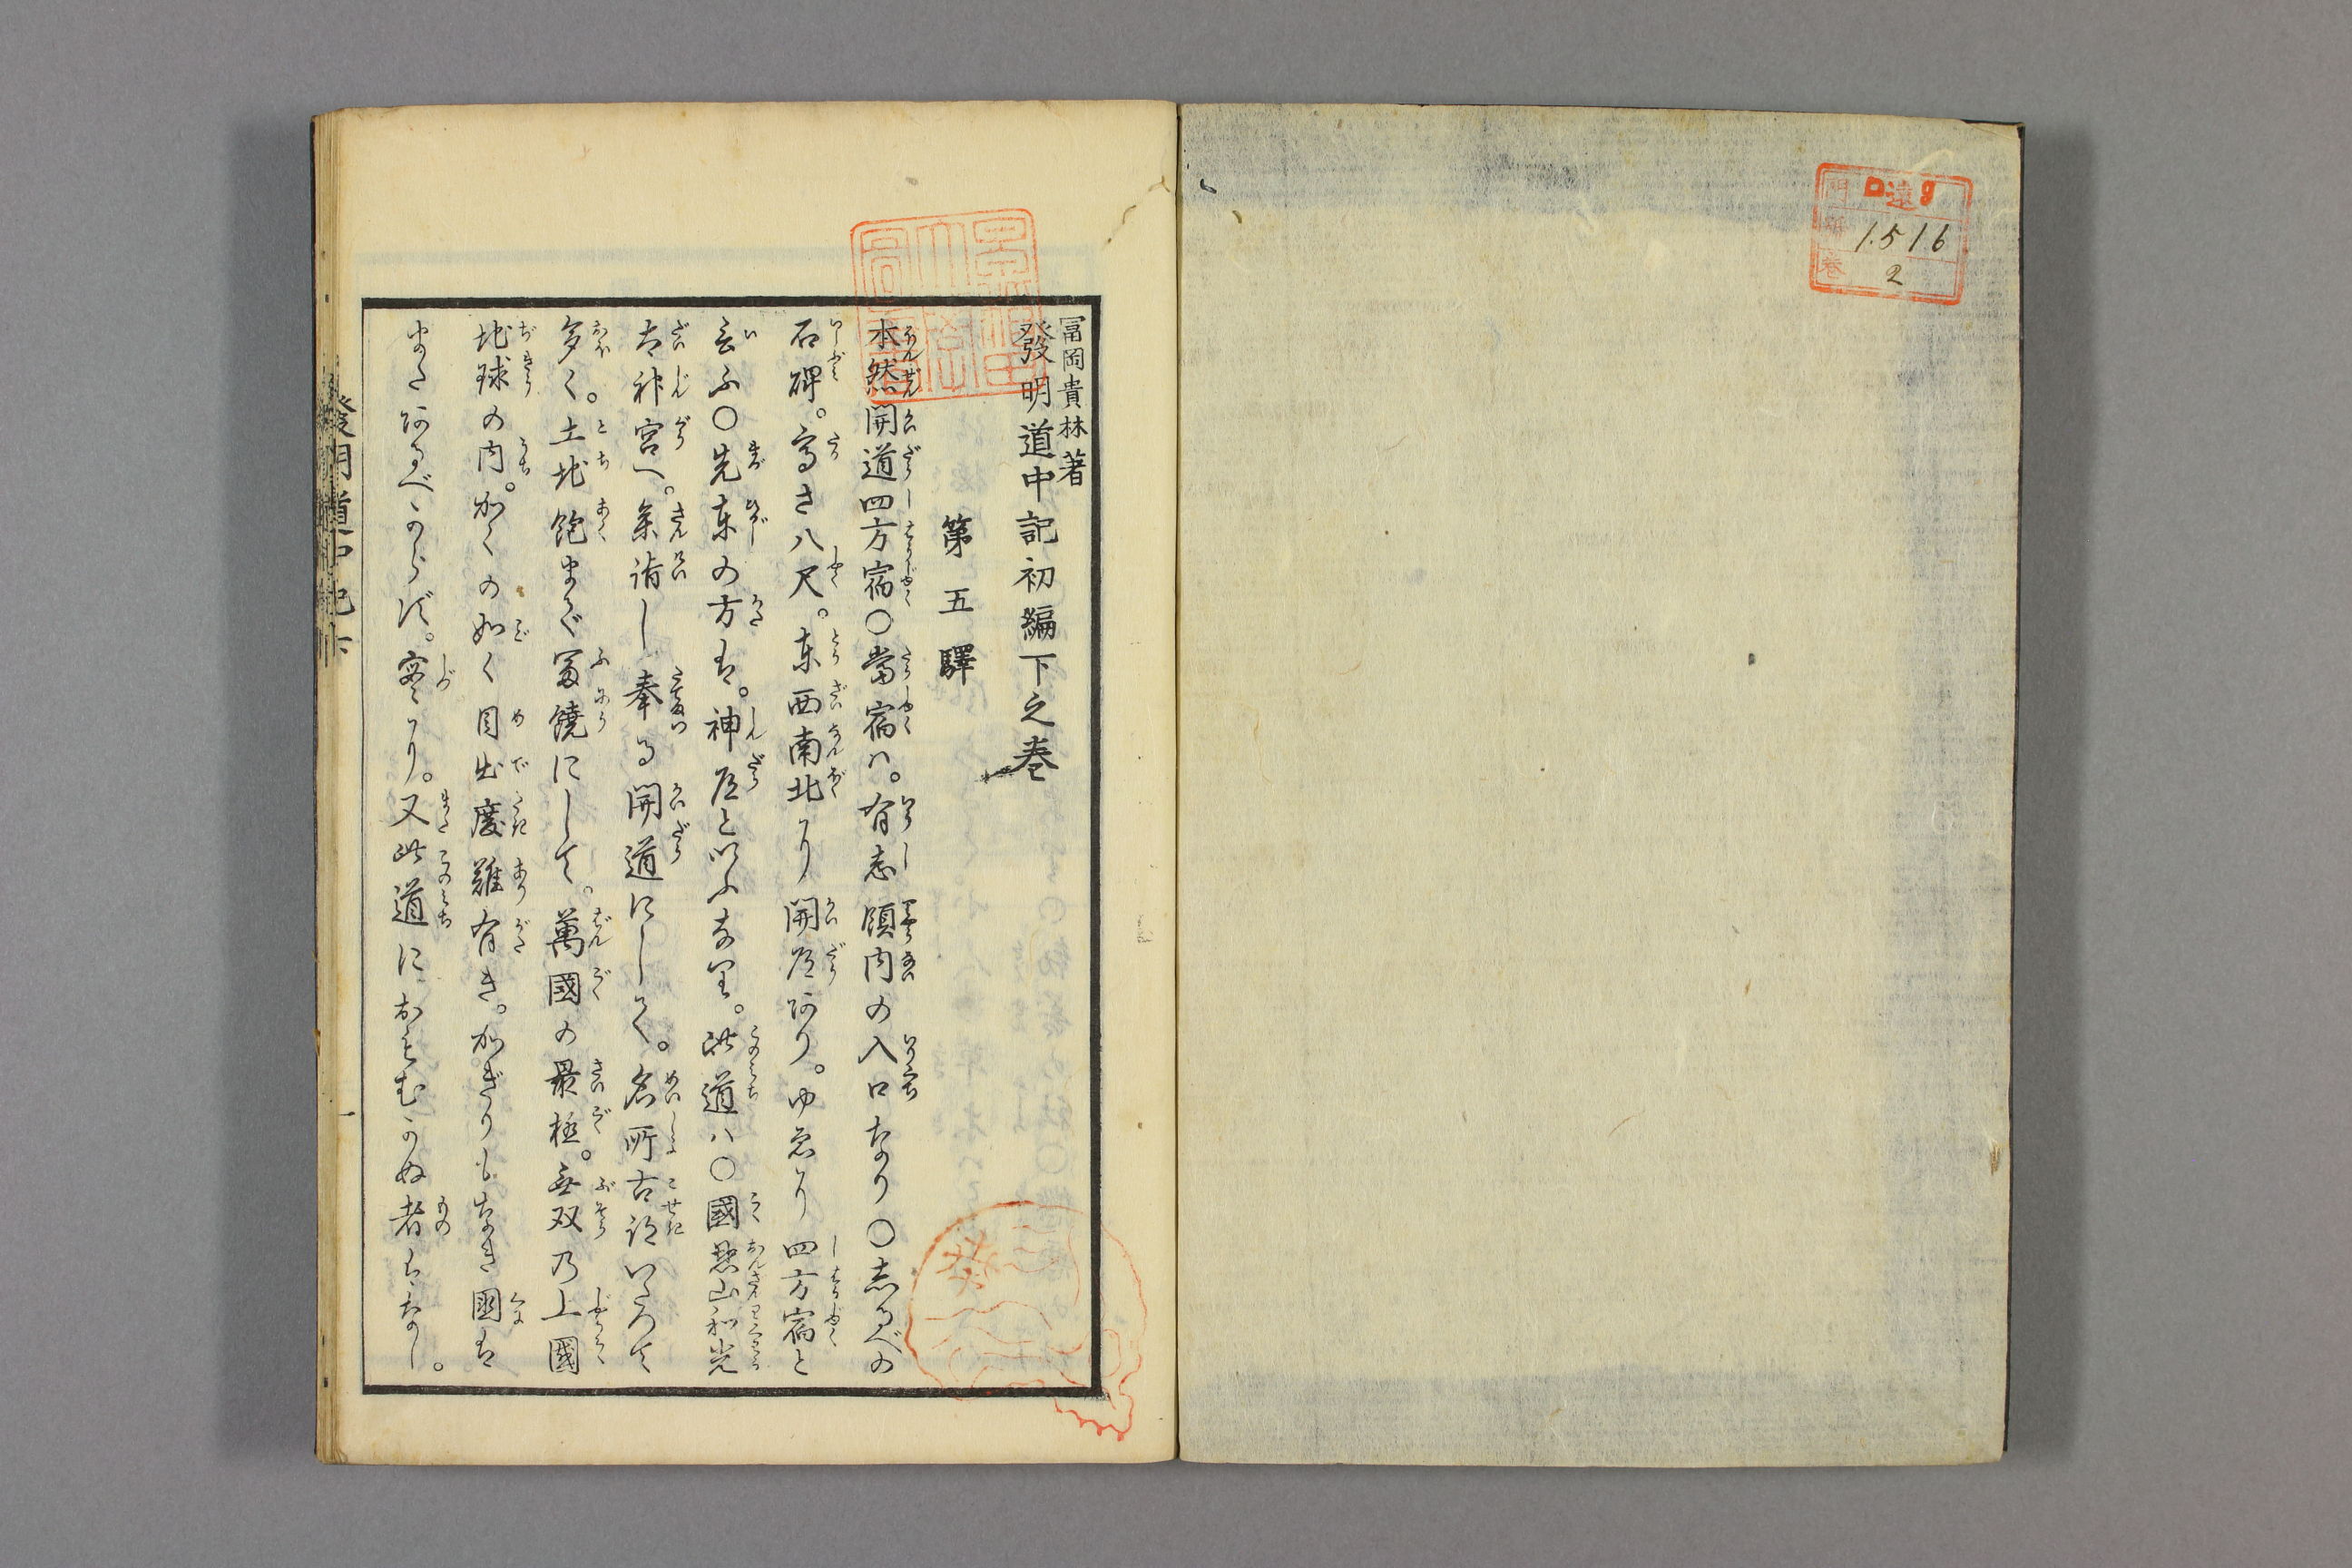 門 ロ遠9
號 1516
巻 2
冨岡貴林著
發明道中記初編下之巻
第五驛
本然開道四方宿〇當宿ハ。有志領内の入口なり〇志るべの
石碑。高さ八尺。東西南北より開道あり。ゆゑに四方宿と
言ふ〇先東の方は。神道といふなり。此道ハ〇國恩山和光
太神宮へ。参詣し奉る開道にして。名所古跡いたつて
多く。土地飽まで冨饒にして。萬國の最極。無双乃上國
地球の内。かくの如く目出度難有き。かぎりもなき國は
またあるべからず。寔に。又此道におもむかぬ者もなし。
發明道中記 下
一